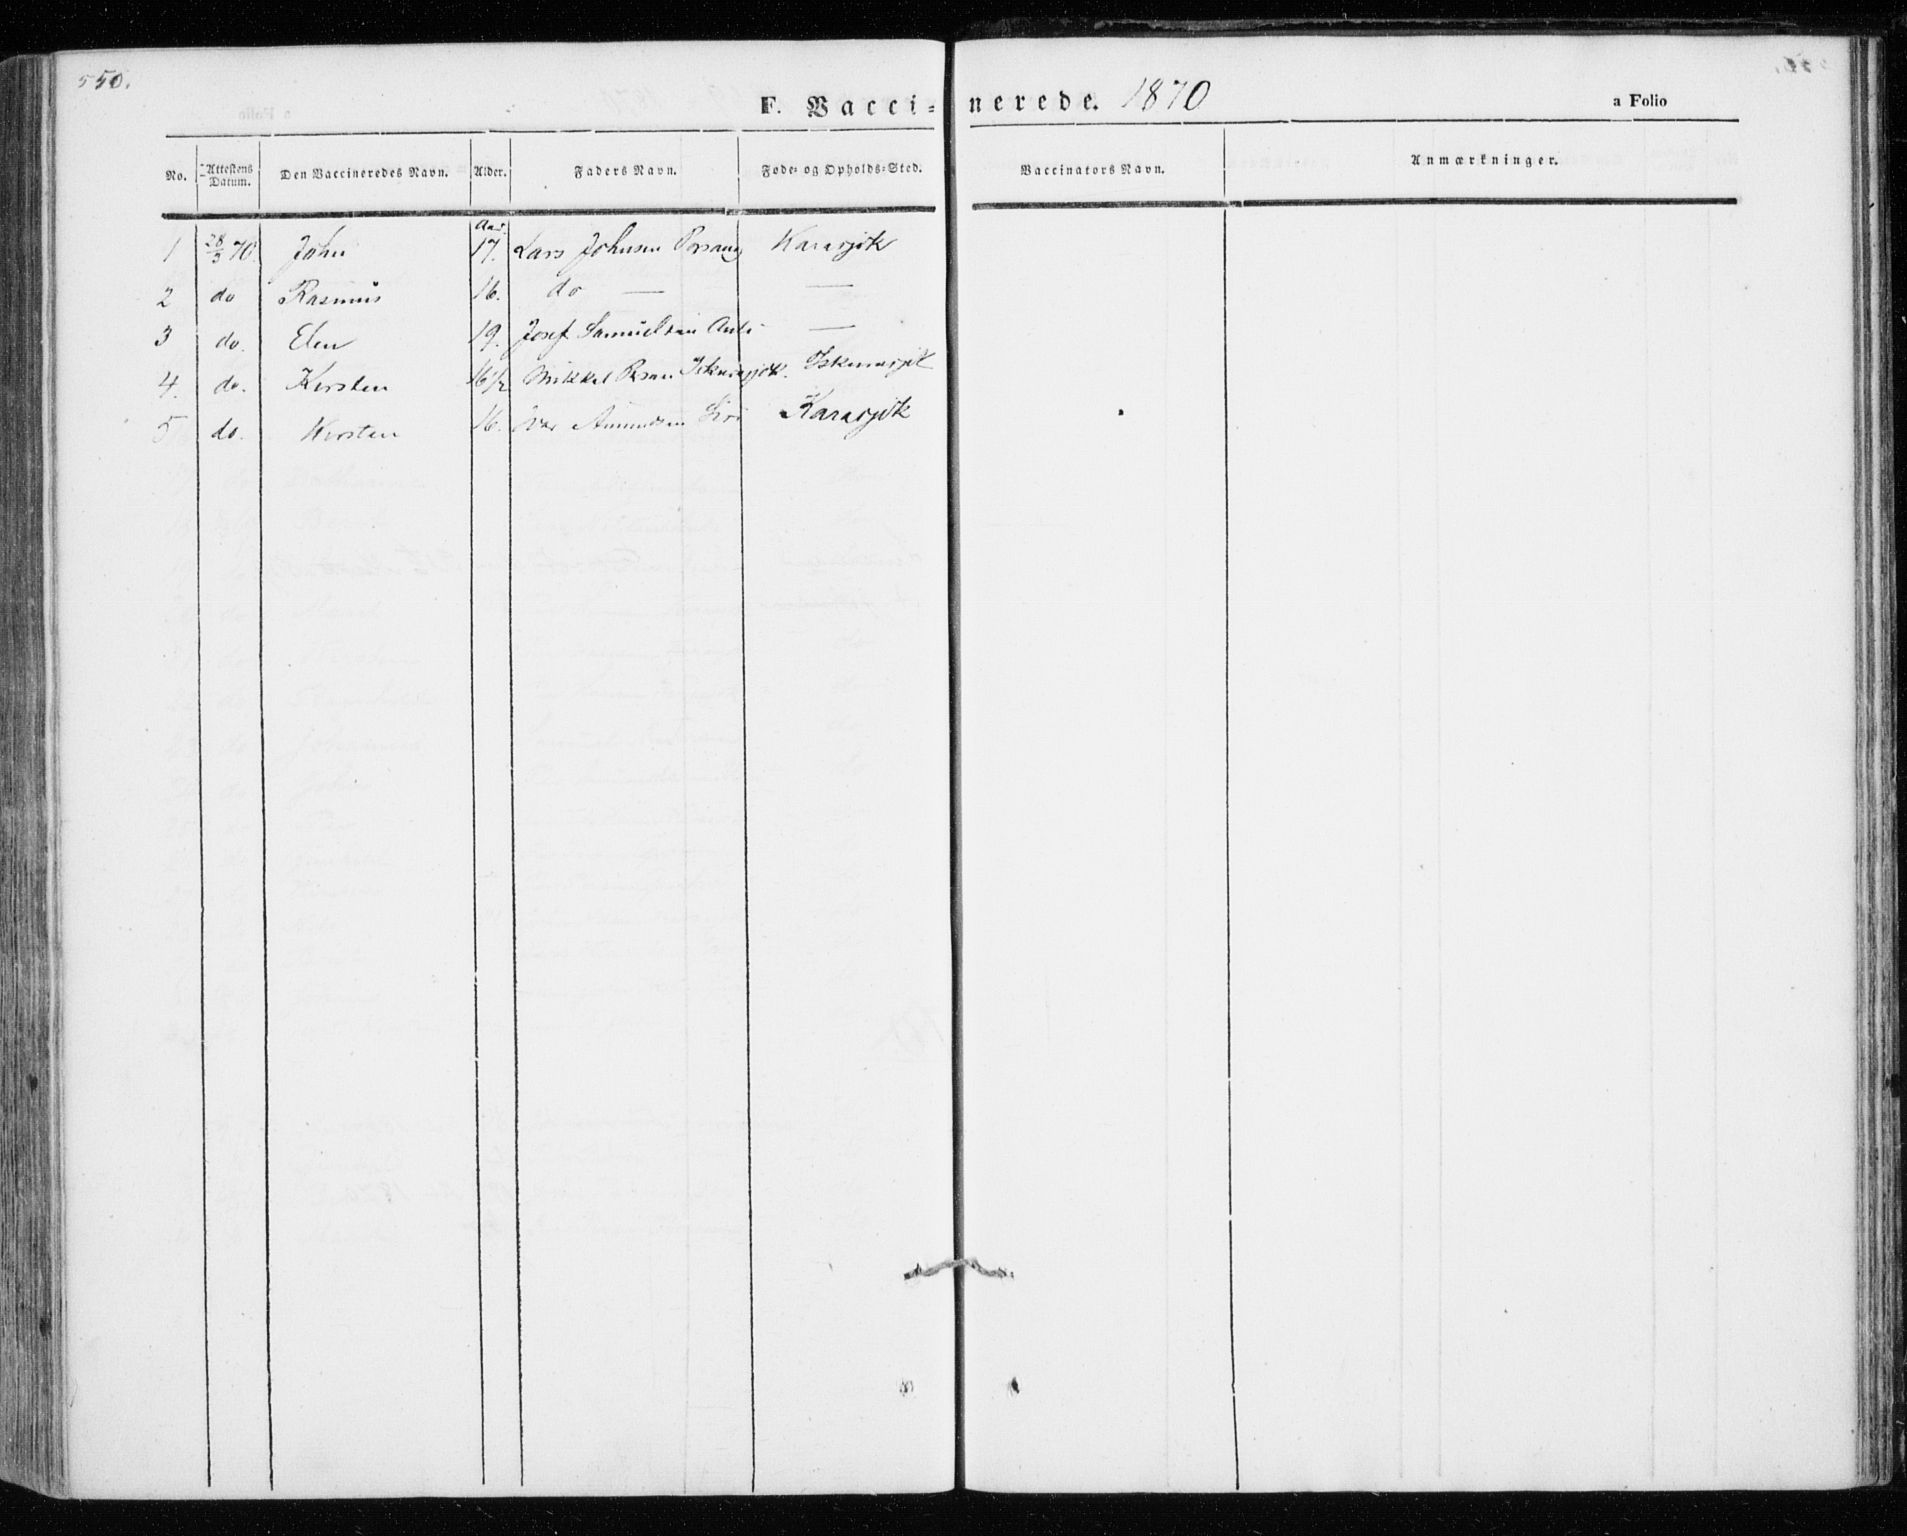 550.
F. Vacci-nerede. 1870
a Folio
No. Attestens Datum. Den Vaccineredes Navn. Alder. Faders Navn. Føde- og Opholds-Sted. Vaccinators Navn. Anmærkninger.
Aar.
1 28/3 70. John 17. Lars Johnsen Porsang Karasjok
2 do Rasmus 16. do — —
3 do. Elen 19. Josef Samuelsen Anti —
4. do. Kirsten 16 1/2 Mikkel Iskurasjok. Iskurasjok
5 do. Kirsten 16. Amundsen Karasjok